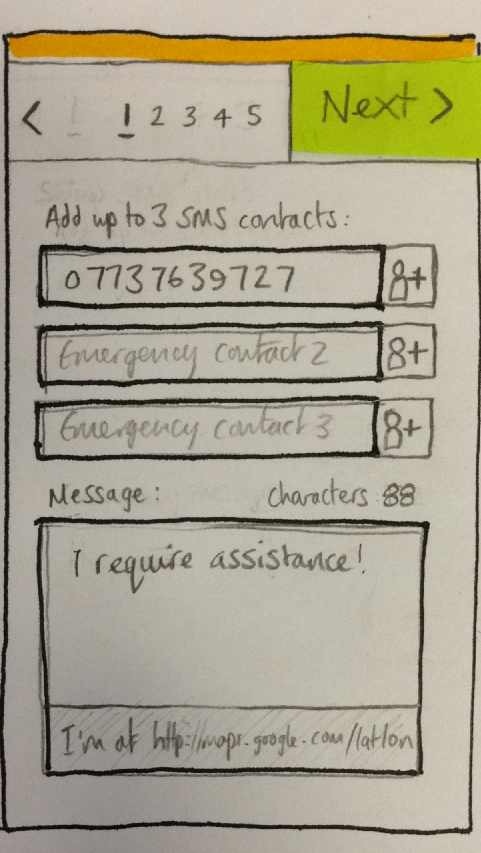 < 1 2 3 4 5 Next >
Add up to 3 SMS contacts:
07737639727 8+
Emergency contact 2 8+
Emergency contact 3 8+
Message: characters 88
I require assistance!
I'm at http://maps.google.com/latlon